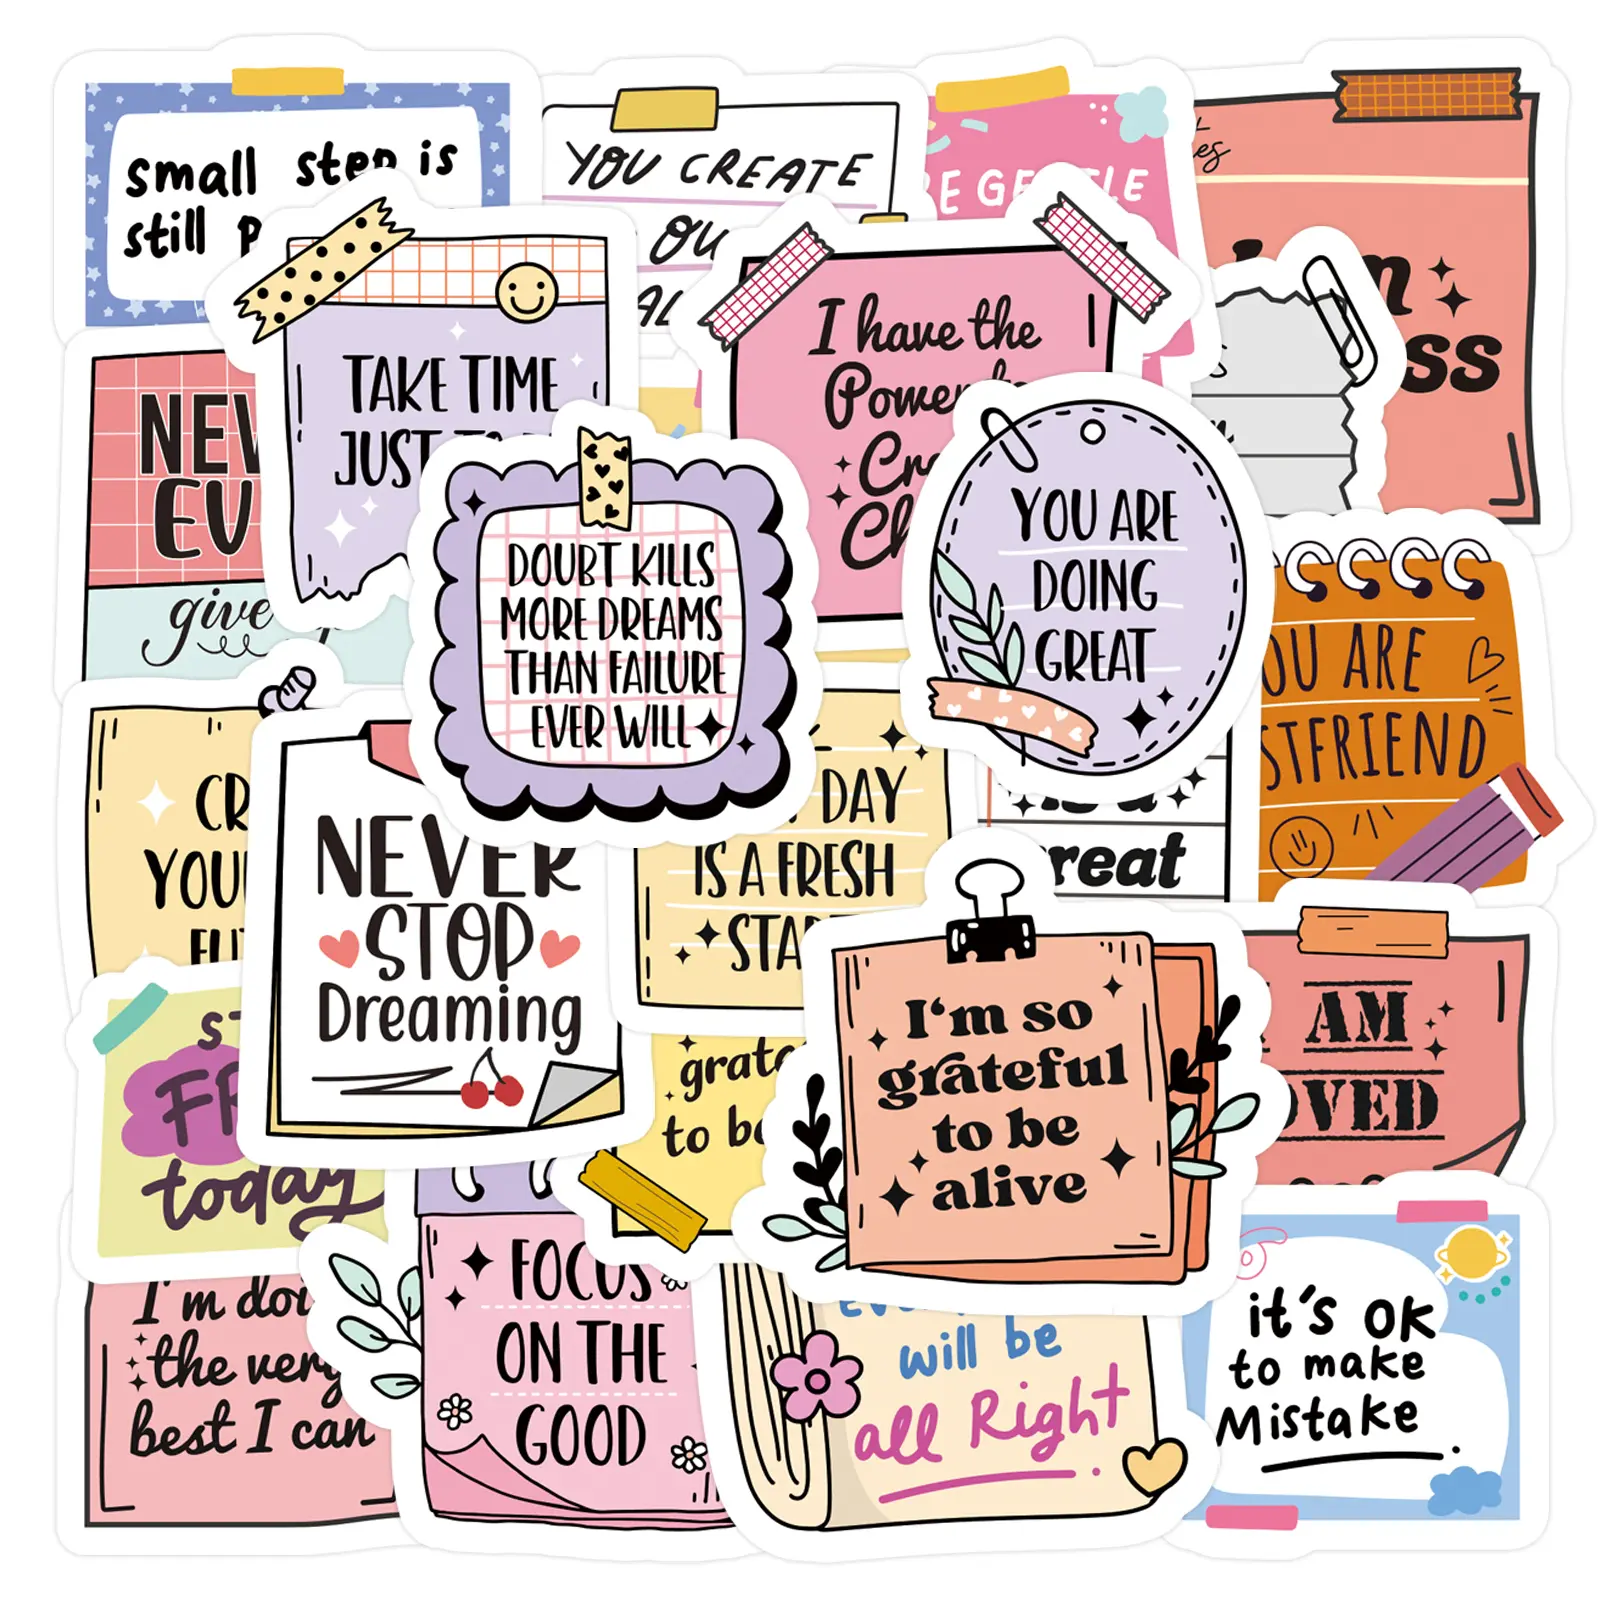 small step is
still
YOU CREATE
OU
GE
LE
TAKE TIME
JUST
I have the
Power
NEV
EV
give
DOUBT KILLS
MORE DREAMS
THAN FAILURE
EVER WILL
YOU ARE
DOING
GREAT
OU ARE
STFRIEND
CR
YOU
NEVER
STOP
Dreaming
DAY
IS A FRESH
STA
reat
I'm so
grateful
to be
alive
grate
to be
I AM
OVED
today
I'm doi
the very
best I can
FOCUS
ON THE
GOOD
will be
all Right
it's ok
to make
Mistake.